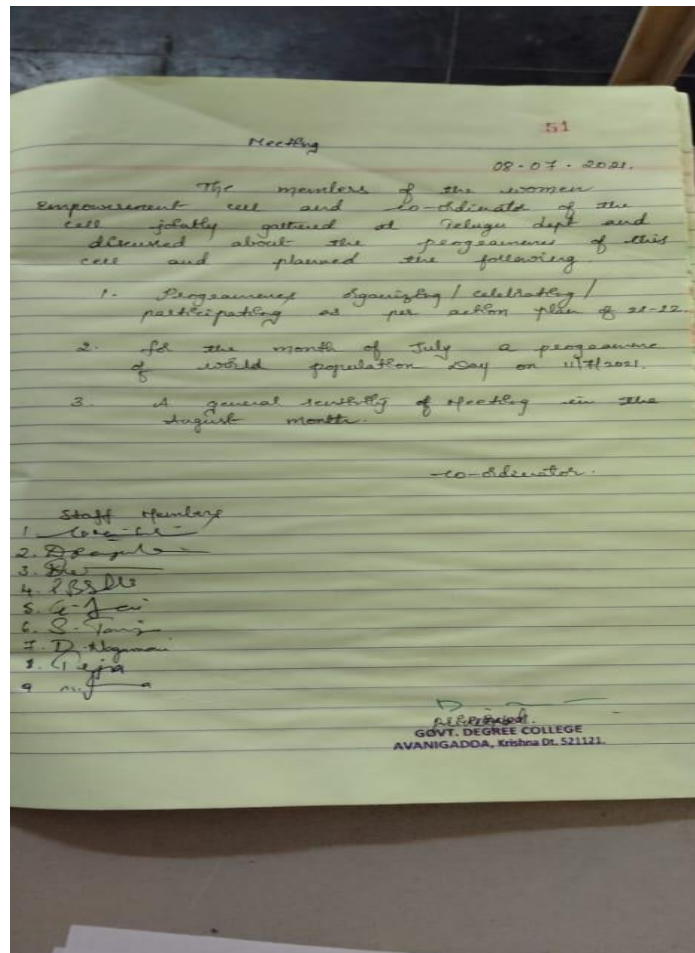 51
Meeting
08-07-2021.
The members of the women
empowerment cell and co-ordinator of the
cell jointly gathered at Telugu dept and
discussed about the programmes of this
cell and planned the following
1. Programmes organizing / celebrating /
participating as per action plan of 21-22.
2. for the month of July a programme
of world population Day on 11/7/2021.
3. A general of Meeting in the
August month.
co-ordinator.
Staff Members
1.
2.
3.
4.
5.
6. S.
7. D. Nagamani
8. Teja
9
GOVT. DEGREE COLLEGE
AVANIGADDA, Krishna Dt. 521121.